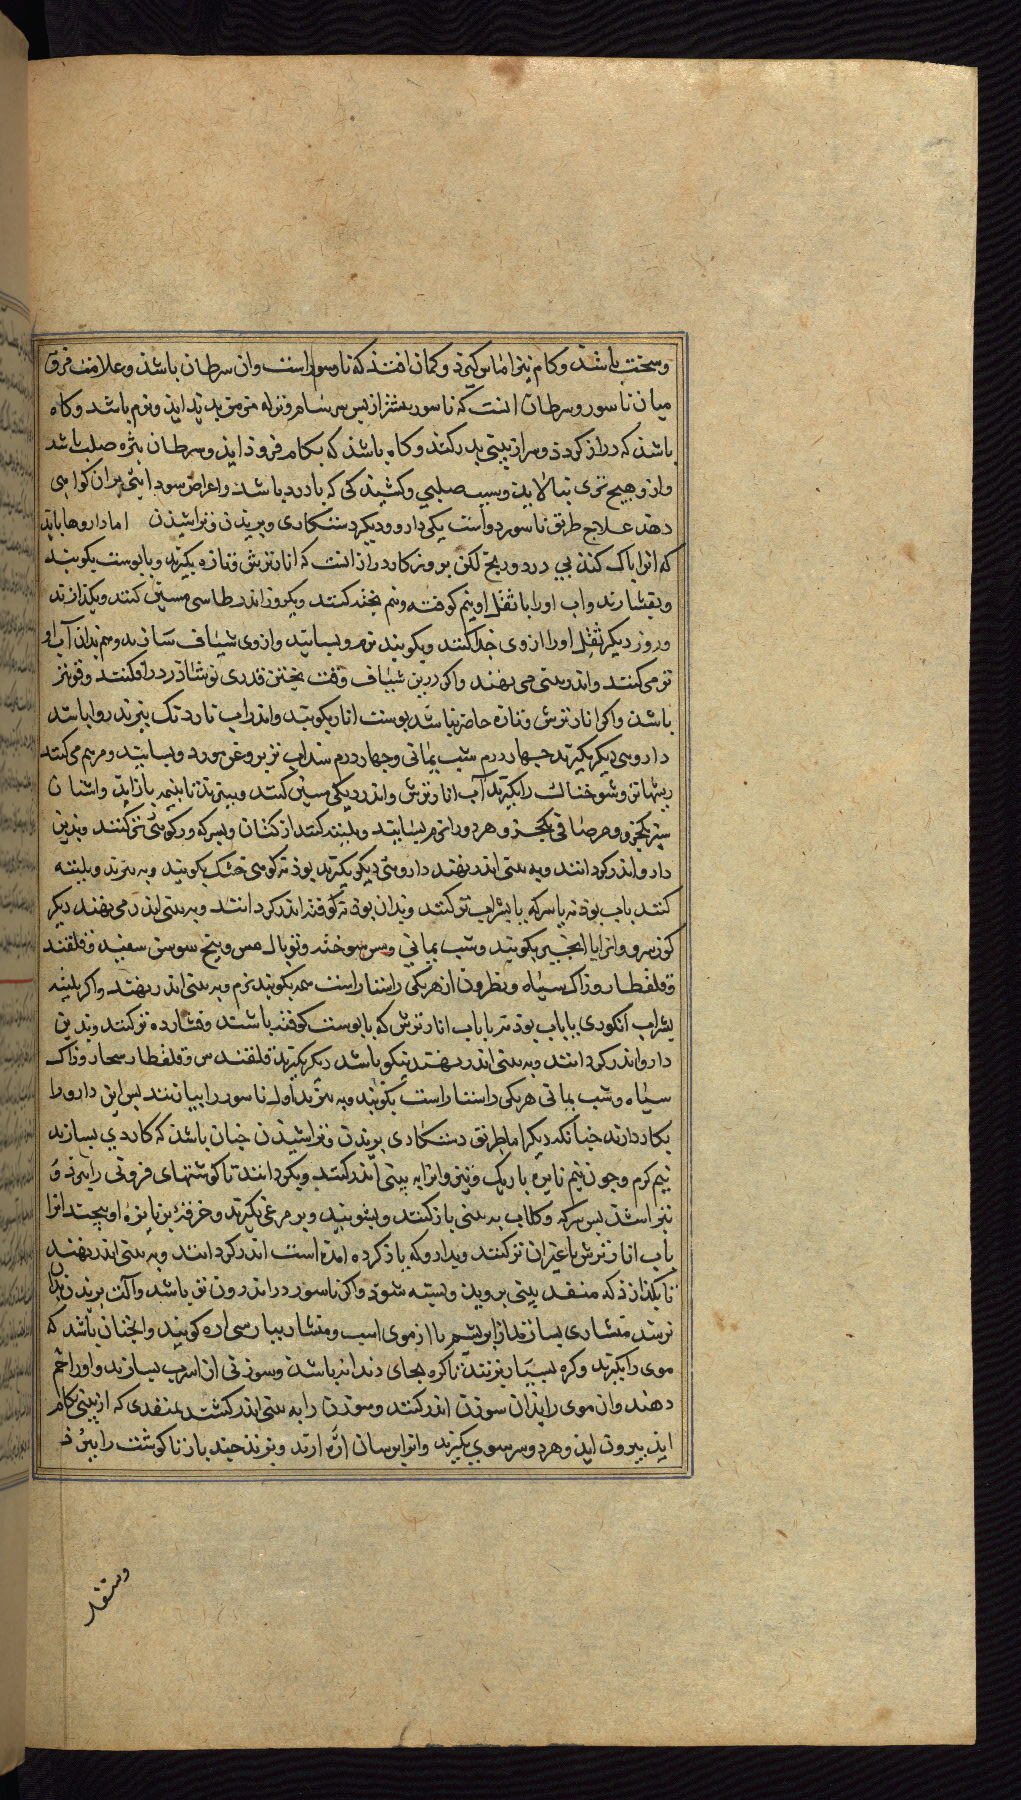 و سخت باشد و کام نیز اماس کیرد و کمان افتد که ناسور است و ان سرطان باشد و علامت فرق
میان ناسور و سرطان انست که ناسور بیشتر از پس سرسام و نزله مزمن پدید اید و نرم باشد و کاه
باشد که دراز کردد و سر از بینی بدر کند و کاه باشد که بکام فرود اید و سرطان بتره صلب باشد
و از و هیچ تری نیالاید و سبب صلبی و کشیدکی که با درد باشد و اعراض سودایی بران کواهی
دهد علاج طریق ناسور دو است یکی دارو و دیکر دستکاری و بریدن و تراشیدن اما داروها باید
که انرا پاک کند بی درد و رنج لکن بروزکار دراز انست که انار ترش و تازه بکیرند و با پوست بکوبند
و بفشارند و اب او را با ثفل او نیم کوفته و نیم پخته کنند و یکروز اندر طاسی مسین کنند و بکذارند
و روز دیکر ثفل او را از وی جدا کنند و بکوبند نرم و بسایند و از وی شیاف سازند و هم بدان آب او
تر می کنند و اندر بینی می نهند و اکر درین شیاف وقت پختن قدری نوشاذر در افکنند و قوتیتر
باشد و اکر انار ترش و تازه حاضر نباشد پوست انار بکوبند و اندر اب ناردنک بپزند روا باشد
داروی دیکر بکیرند چهار درم شب یمانی و چهار درم سنداب تر بروغن مورد و بسایند و مرهم می کنند
ریشها تر و شوخناک را بکیرند آب انار ترش و اندر دیکی مسین کنند و بپزند تا بنیمه باز اید و اشنان
سبز یکجزو و مرصافی یکجزو و هر دو را نرم بسایند و بلیته کنند از کتان و بسرکه و رکوئی تر کنند و بدین
دارو اندر کردانند و به بینی اندر نهند داروئی دیکر بکیرند پودنه کوهی خشک بکوبند و به بیزند و بلیته
کنند باب پودنه یا سرکه یا بشراب تر کنند و بدان پودنه کوفته اندر کردانند و به بینی اندر می نهند دیکر
کوزسرو و انرا با انجیر بکوبند و شب یمانی و مس سوخته و توبال مس و بیخ سوسن سفید و قلقند
و قلقطار و زاک سیاه و نطرون از هریکی راستا راست همه بکوبند نرم و به بینی اندر نهند و اکر بلیته
بشراب انکوری یا باب پودنه یا باب انار ترش که با پوست کوفته باشند و فشارده تر کنند و بدین
دارو اندر کردانند و به بینی اندر نهند نیکو باشد دیکر بکیرند قلقند س و قلقطار و زاک
سیاه و شب یمانی هر یکی راستا راست بکوبند و به بیزند اول ناسور را بیاتنند پس این دارو را
بکار دارند چنانکه دیکر اما طریق دستکاری بریدن و تراشیدن چنان باشد که کاردی بسازند
نیم کرم و چون نیم نایزه باریک و تیز و انرا به بینی اندر کنند و بکردانند تا کوشتهای فزونی را ببرد و
بتراشد پس سرکه و کلاب به بینی باز کنند و بشویند و پر مرغی بکیرند و خرقه برنایزه او پیچند انرا
باب انار ترش یا غیران تر کنند و بدارو که یاذ کرده امده است اندر کردانند و به بینی اندر نهند
تا بکذارد که منفذ بینی بروید و بسته شود و اکر ناسور در اندرون تر باشد و آلت بریدن بدان
نرسد منشاری بسازند از ابریشم یا از موی اسپ و منشار بپارسی اره کویند و انچنان باشد که
موی را بکیرند و کره بسیار بزنند تا کره بجای دندانه باشد و سوزنی از اسرب بسازند و او را خم
دهند و ان موی را بدان سوزن اندر کنند و سوزن را به بینی اندر کشند بمنفذی که از بینی بکام
اید بیرون اید و هر دو سر موی بکیرند و انرا بر سان اره ارند و برند چند بار تا کوشت را ببرد
و منفذ